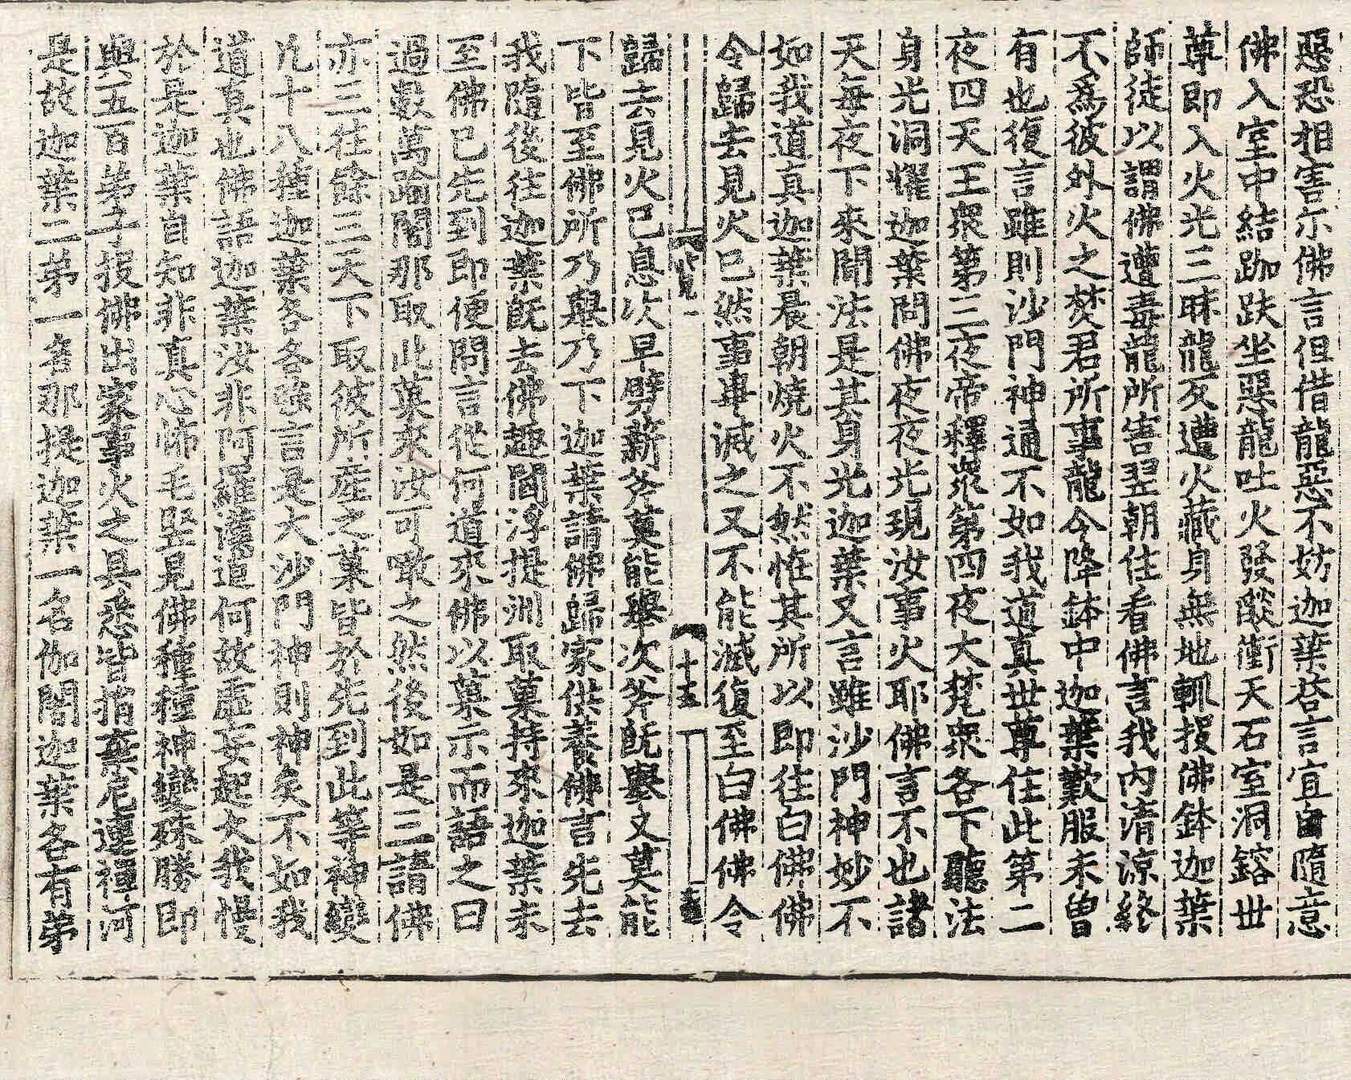 惡恐相害尒佛言但借龍惡不妨迦葉荅言宜自隨意
佛入室中結跏趺坐惡龍吐火發𦦨衝天石室洞鎔世
尊即入火光三昧龍反遭火藏身無地輒投佛鉢迦葉
師徒以謂佛遭毒龍所害翌朝住看佛言我內清凉終
不爲彼外火之焚君所事龍今降鉢中迦葉歎服未曾
有也復言雖則沙門神通不如我道真世尊住此第二
夜四天王衆第三夜帝釋衆第四夜大梵衆各下聽法
身光洞耀迦葉問佛夜夜光現汝事火耶佛言不也諸
天每夜下來聞法是其身光迦葉又言雖沙門神妙不
如我道真迦葉晨朝燒火不然恠其所以即往白佛佛
令歸去見火已然事畢滅之又不能滅復至白佛佛令
覽一 十五
歸去見火已息次早劈薪斧莫能擧次斧旣擧又莫能
下皆至佛所乃擧乃下迦葉請佛歸家供養佛言先去
我隨後往迦葉旣去佛趣閻浮提洲取菓持來迦葉未
至佛已先到即便問言從何道來佛以菓示而語之曰
過數萬踰闍那取此菓來汝可噉之然後如是三請佛
亦三往餘三天下取彼所産之菓皆於先到此等神變
凡十八種迦葉各各強言是大沙門神則神矣不如我
道真也佛語迦葉汝非阿羅漢道何故虛妄起大我慢
於是迦葉自知非真心怖毛竪見佛種種神變殊勝即
與五百弟子投佛出家事火之具悉皆捐棄尼連禪河
是故迦葉二弟一名那提迦葉一名伽闍迦葉各有弟